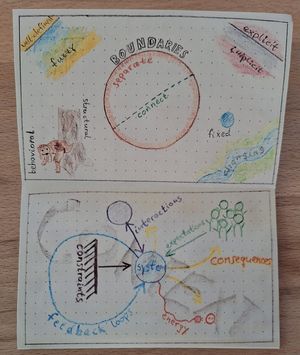 well-defined
fuzzy
BOUNDARIES
explicit
implicit
separate
connect
structural
behavioral
fixed
changing
interactions
expectations
system
consequences
constraints
feedback loops
energy